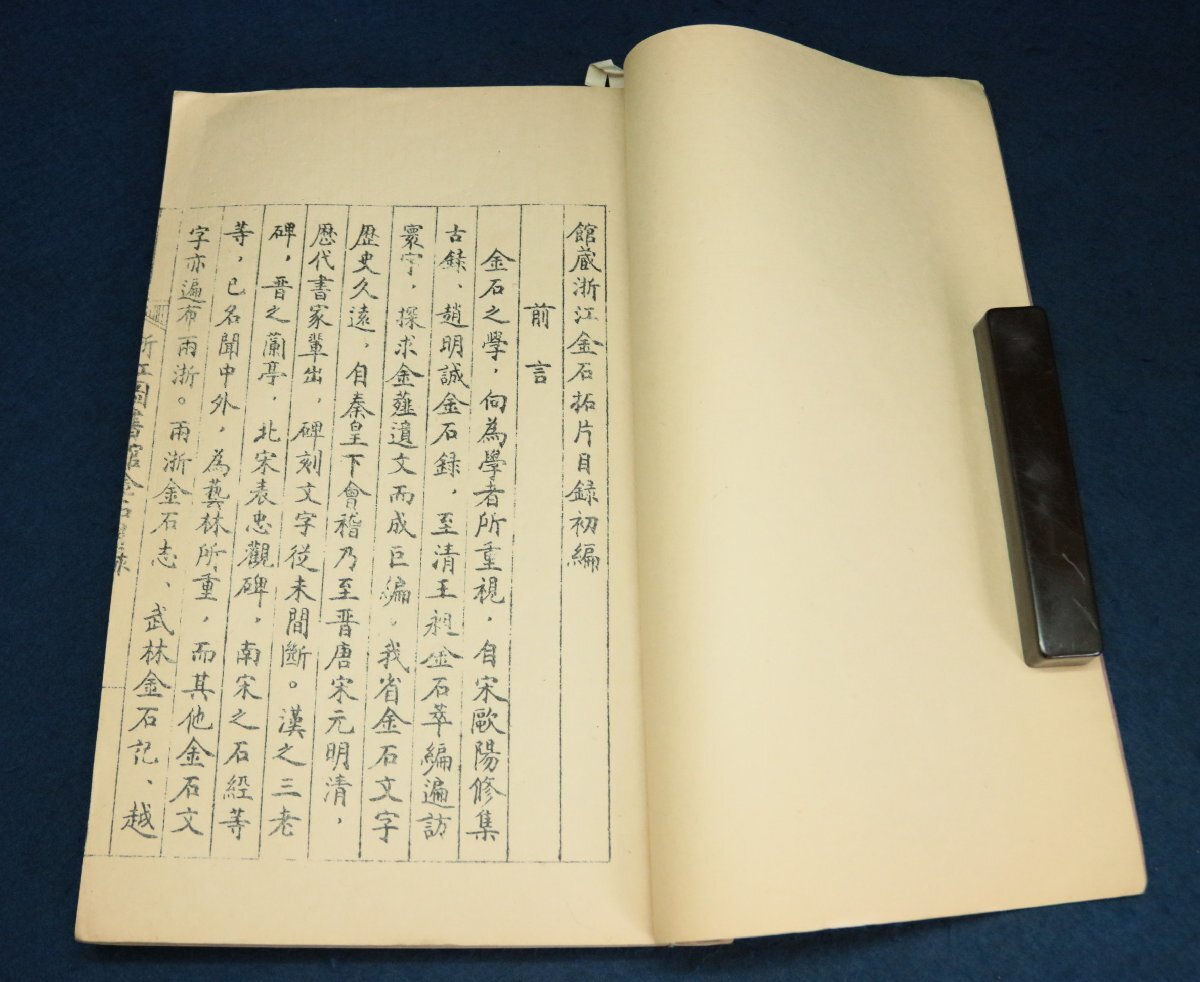 館蔵浙江金石拓片目録初編
前言
金石之學，向為學者所重視，自宋歐陽修集
古録、趙明誠金石録，至清王昶金石萃編遍訪
寰宇，探求金薤遺文而成巨編。我省金石文字
歷史久遠，自秦皇下會稽乃至晋唐宋元明清，
歷代書家輩出，碑刻文字從未間斷。漢之三老
碑，晋之蘭亭，北宋表忠觀碑，南宋之石經等
等，已名聞中外，為藝林所重，而其他金石文
字亦遍布兩浙。兩浙金石志、武林金石記、越
浙江圖書館金石目録